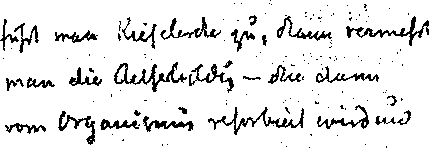 führt man Kieselerde zu, dann vermehrt
man die Aetherbildg – die dann
vom Organismus resorbiert wird und